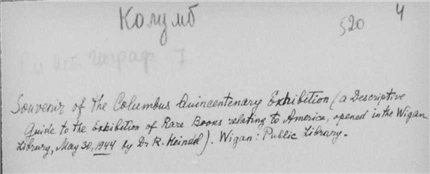 Колумб
520
4
Souvenir of the Columbus Quincentenary Exhibition (a Descriptive
Guide to the Exhibition of Rare Books relating to America, opened in the Wigan
Library, May 30, 1944 by Dr R. Heindel). Wigan: Public Library.